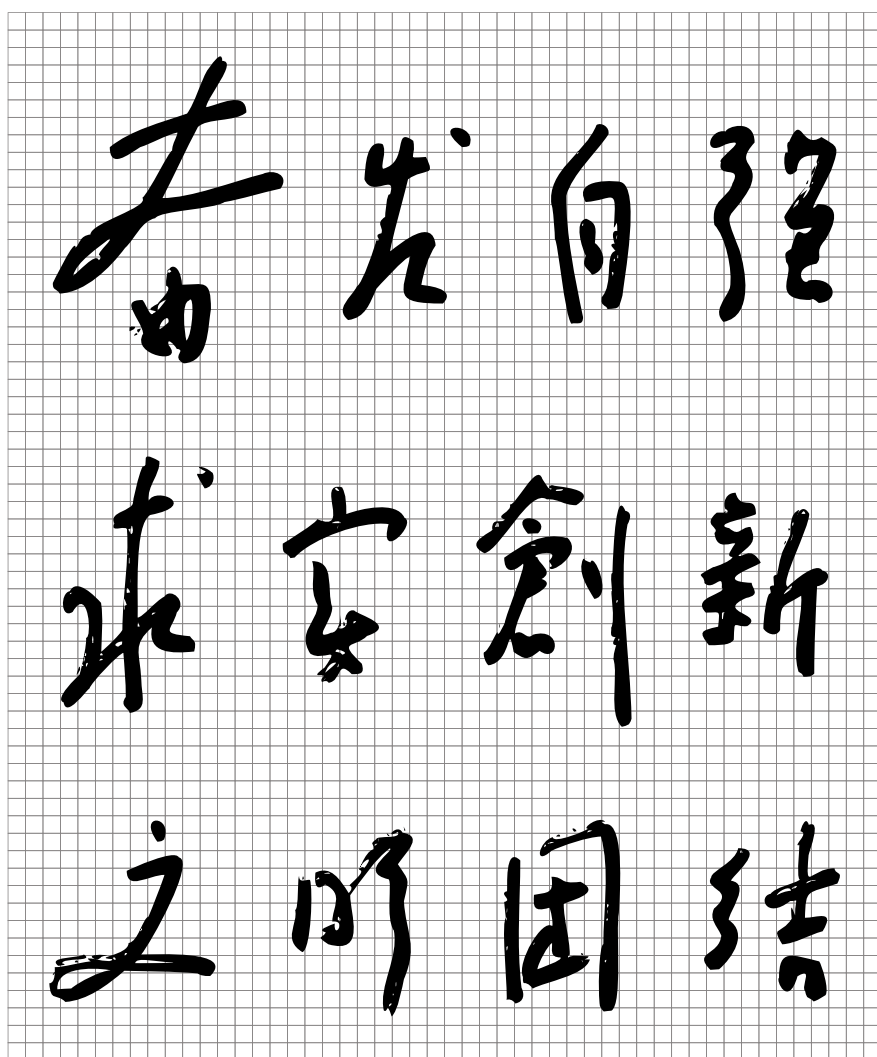 奋发自强
求实創新
文明团结